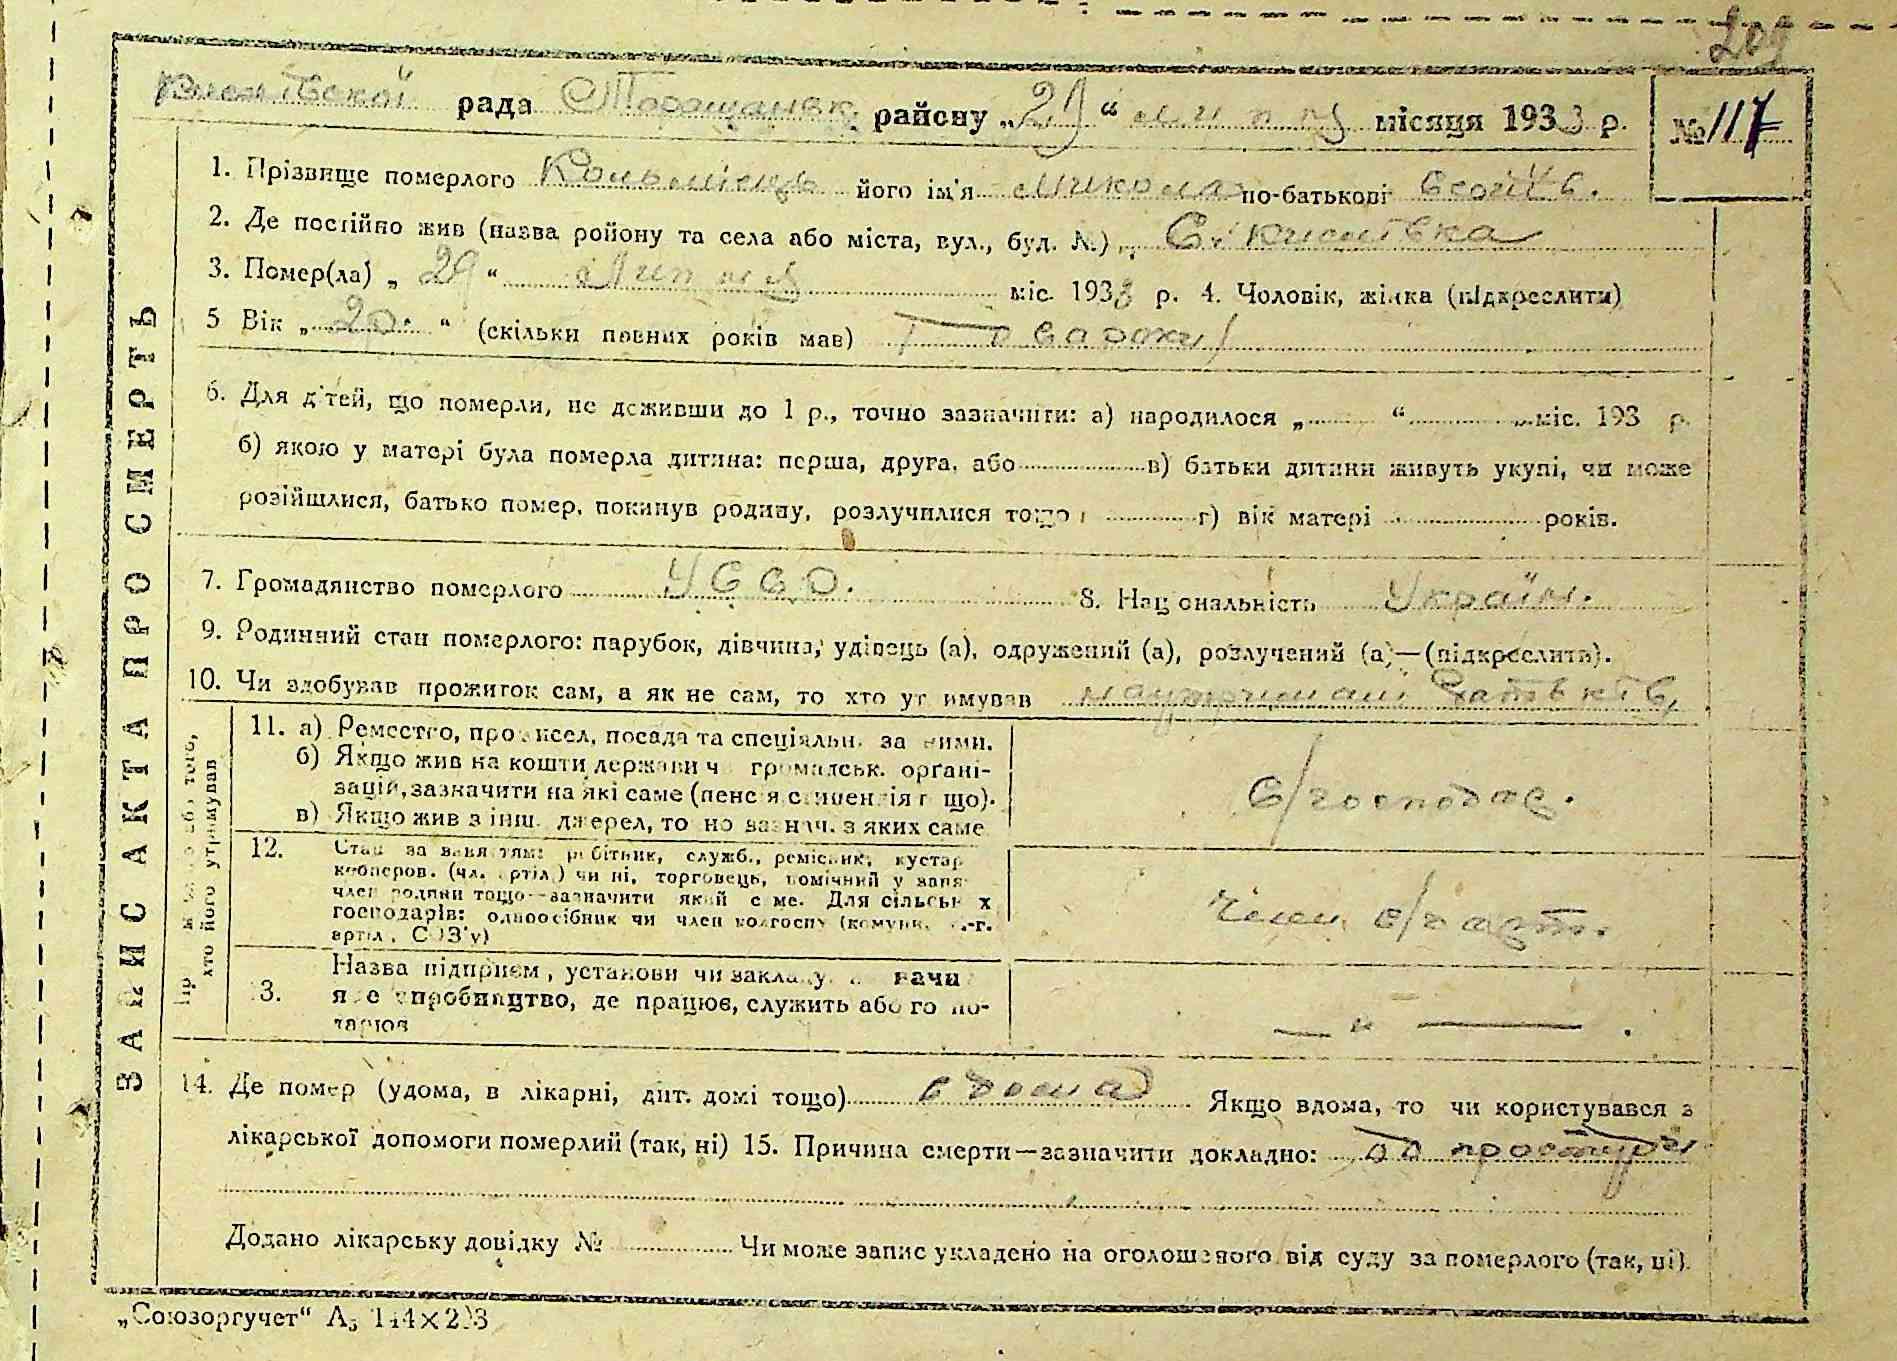 209
рада Таращанськ. району „29“ липня місяця 1933 р. №117
1. Прізвище померлого Коломієць його ім'я Микола по-батькові
2. Де постійно жив (назва району та села або міста, вул., буд. №) С. Кислівка
3. Помер(ла) „29“ Липня міс. 1933 р. 4. Чоловік, жінка (підкреслити)
5 Вік „2р.“ (скільки повних років мав) два роки
6. Для дітей, що померли, не доживши до 1 р., точно зазначити: а) народилося „ “ міс. 193 р.
б) якою у матері була померла дитина: перша, друга, або в) батьки дитини живуть укупі, чи може
розійшлися, батько помер, покинув родину, розлучилися тощо г) вік матері років.
7. Громадянство померлого УССР. 8. Національність Україн.
9. Родинний стан померлого: парубок, дівчина, удівець (а), одружений (а), розлучений (а)—(підкреслити).
10. Чи здобував прожиток сам, а як не сам, то хто утримував на утриманні батьків
ЗАПИС АКТА ПРО СМЕРТЬ
того,
хто його утримував
11. а) Ремество, промисел, посада та спеціальн. за ними.
б) Якщо жив на кошти держави чи громадськ. органі-
зацій, зазначити на які саме (пенсія стипендія тощо).
в) Якщо жив з інш. джерел, точно зазнач. з яких саме
с/господар.
12. Стан за заняттям: робітник, служб., ремісник, кустар
кооперов. (чл. артіл.) чи ні, торговець, помічний у заня-
член родини тощо—зазначити який саме. Для сільськ х
господарів: одноосібник чи член колгоспу (комуни, с.-г.
артіл., СОЗ'у)
член с/г арт.
13. Назва підприєм., установи чи закладу, зазначи
яке виробництво, де працює, служить або го по-
дарює
— „ — .
14. Де помер (удома, в лікарні, дит. домі тощо) вдома Якщо вдома, то чи користувався з
лікарської допомоги померлий (так, ні) 15. Причина смерти—зазначити докладно: од простуди
Додано лікарську довідку № Чи може запис укладено на оголошеного від суду за померлого (так, ні).
„Союзоргучет“ А5 144×203